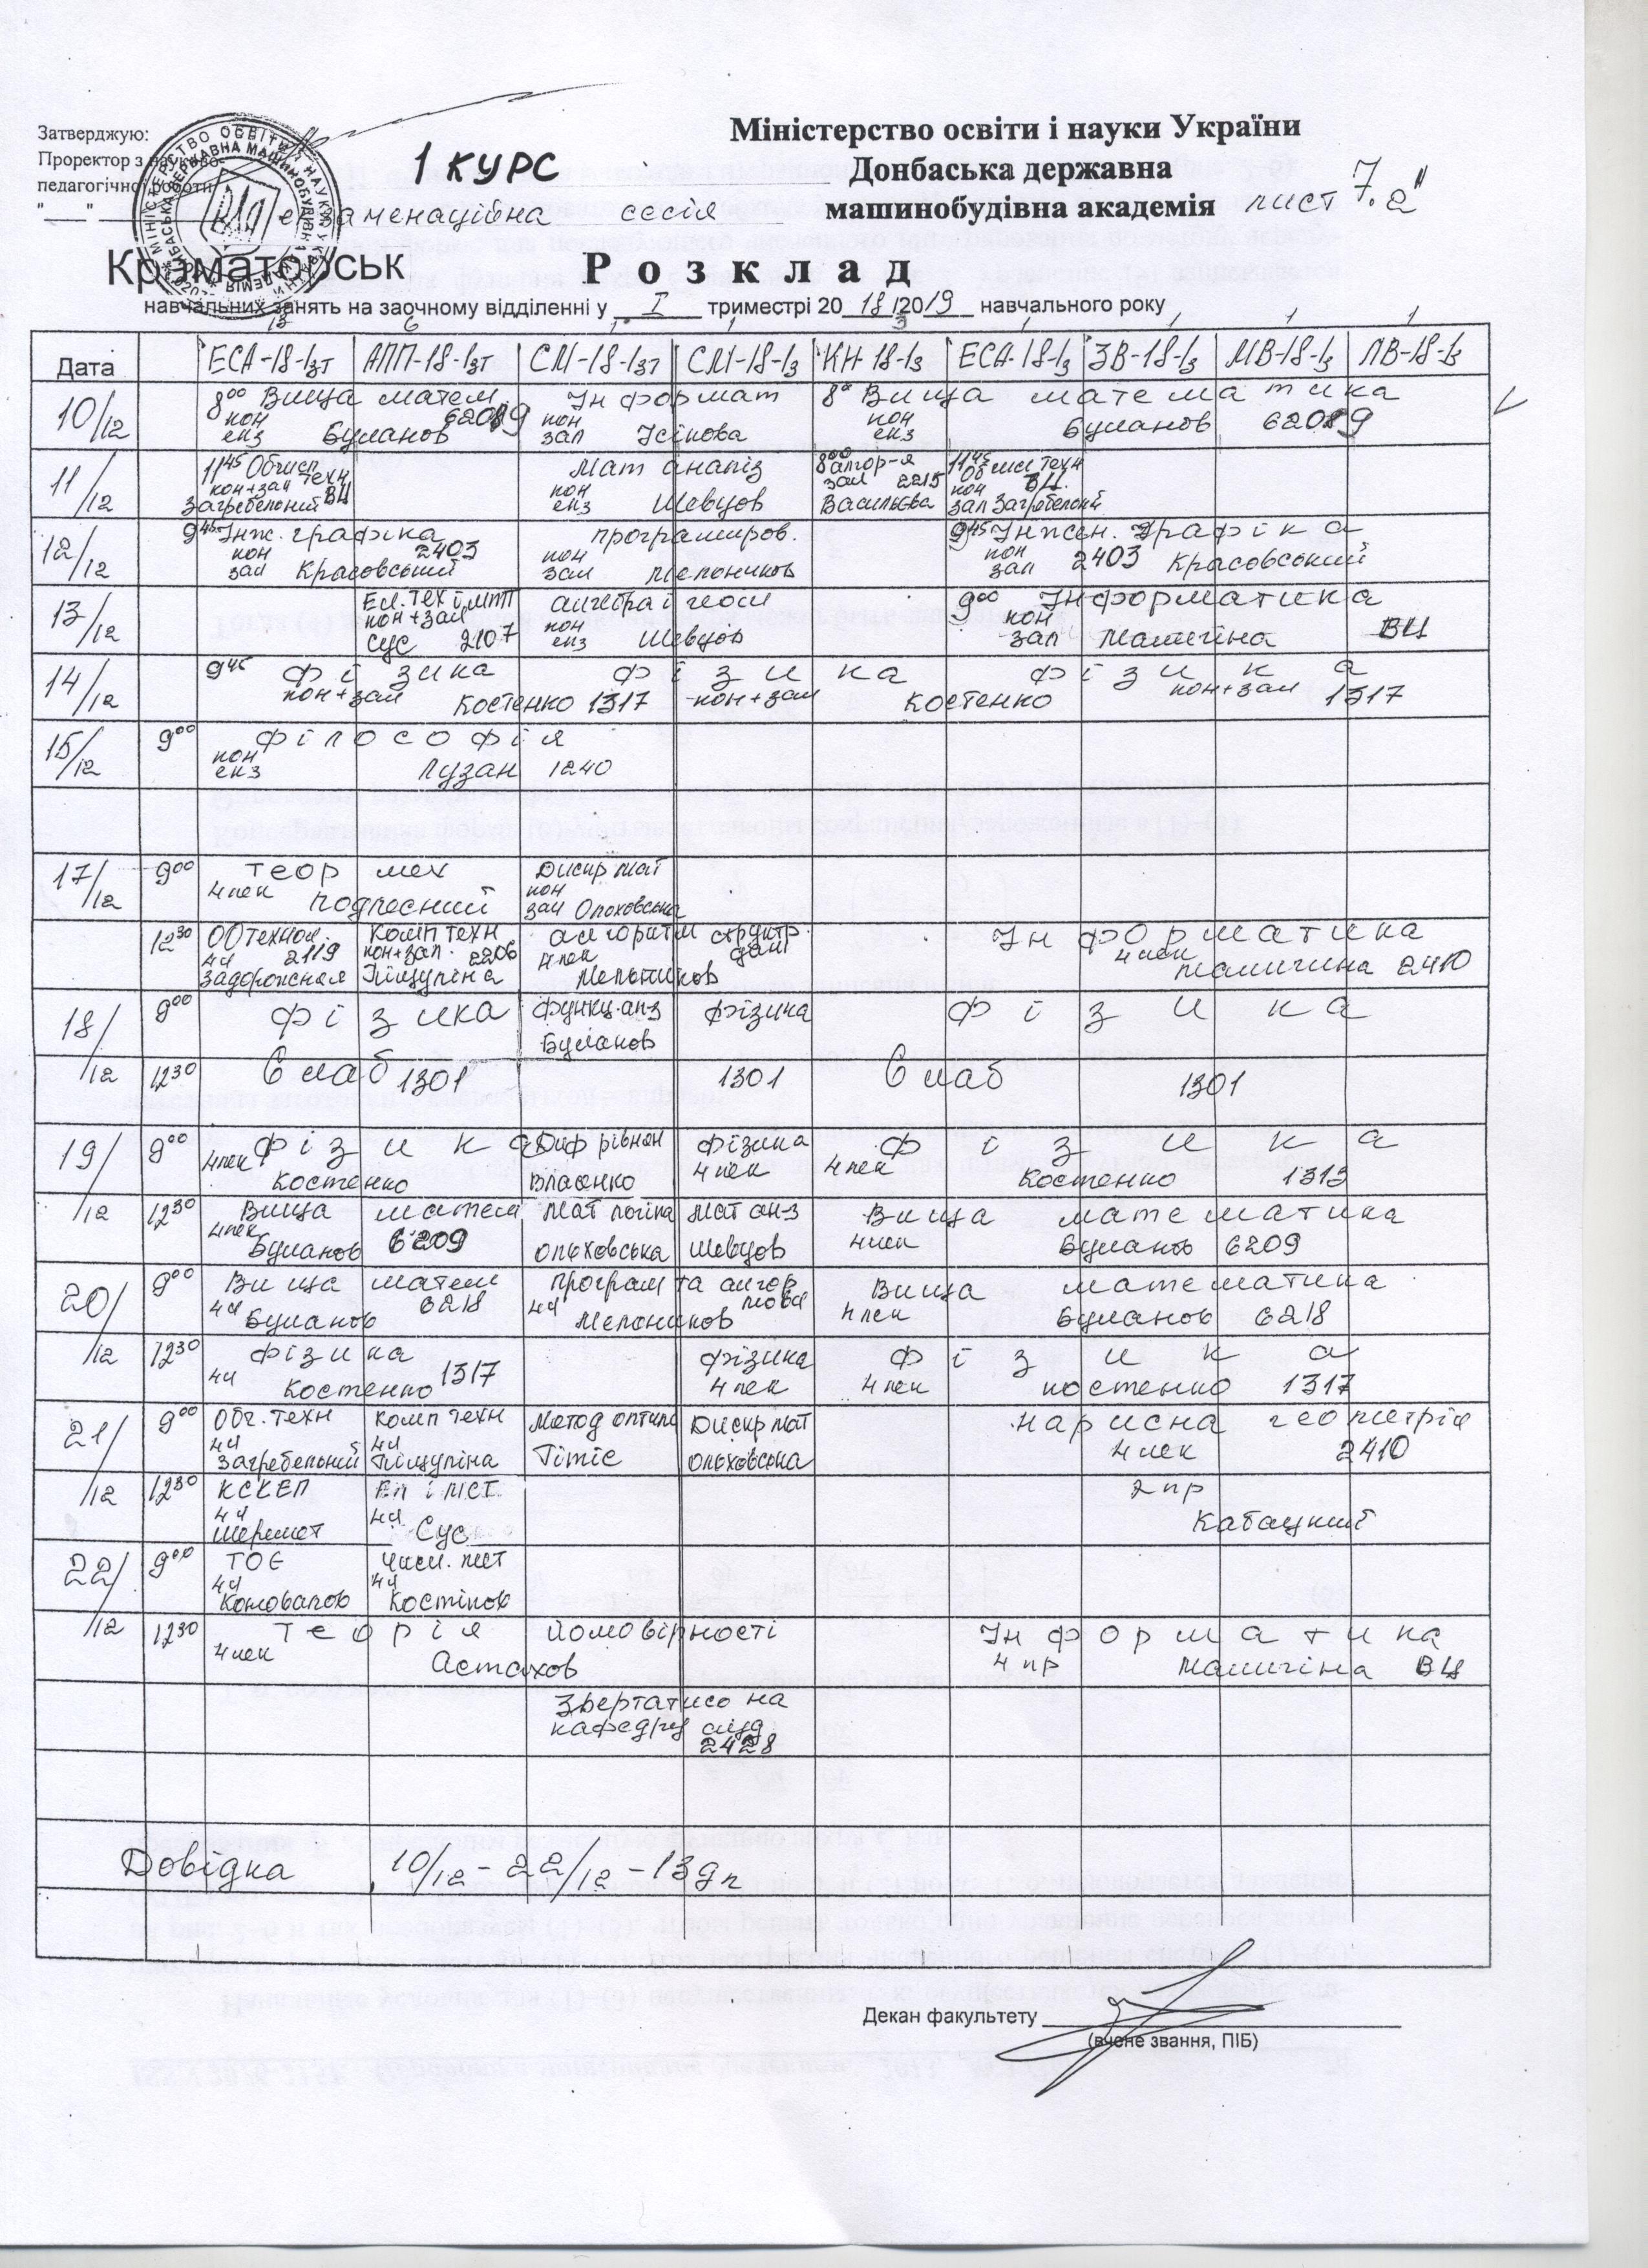 Затверджую:
Проректор з науково-
педагогічної роботи
1 КУРС
екзаменаційна сесія
Міністерство освіти і науки України
Донбаська державна
машинобудівна академія
лист 7.2"
Краматорськ
Розклад
навчальних занять на заочному відділенні у I триместрі 2018/2019 навчального року
Дата ЕСА-18-1зт АПП-18-1зт СМ-18-1зт СМ-18-1з КН-18-1з ЕСА-18-1з ЗВ-18-1з МВ-18-1з ЛВ-18-1з
10/12 8⁰⁰ Вища матем Інформат 8⁰⁰ Вища математика
кон кон кон
екз Буланов зал екз Буланов
11/12 11⁴⁵ Обчисл техн Мат аналіз 8⁰⁰ алгор-я 11⁴⁵ Обчисл техн
кон+зал ВЦ кон зал 2215 кон ВЦ
Загребельний екз Шевцов Васильєва зал Загребельний
12/12 9⁴⁵ Інж. графіка програмиров. 9⁴⁵ Інжен. Графіка
кон 2403 кон кон 2403
зал Красовський зал Мельников зал Красовський
13/12 Ел. тех і МПП алгебра і геом 9⁰⁰ Інформатика
кон+зал кон кон
Сус 2107 екз Шевцов зал Малигіна ВЦ
14/12 9⁴⁵ фізика фізика фізика
кон+зал Костенко 1317 кон+зал Костенко кон+зал 1317
15/12 9⁰⁰ філософія
кон
екз Лузан 1240
17/12 9⁰⁰ теор мех Дискр мат
4 лек Подлесний кон
зал Ольховська
12³⁰ ОО технол. Комп техн алгоритм структр. Інформатика
4ч 2119 кон+зал. 2206 4 лек дані 4 лек
Задорожная Піщуліна Мельников Малигина 2410
18/12 9⁰⁰ фізика функц. ан-з фізика фізика
Буланов
12³⁰ 6 лаб 1301 1301 6 лаб 1301
19/12 9⁰⁰ фізика Диф рівнян фізика фізика
4 лек 4 лек 4 лек
Костенко Власенко Костенко 1313
12³⁰ Вища матем Мат логіка Мат ан-з Вища математика
4 лек 4 лек
Буланов 6209 Ольховська Шевцов Буланов 6209
20/12 9⁰⁰ Вища матем програм та алгор мова Вища математика
4ч Буланов 6218 4ч Мельников 4 лек Буланов 6218
12³⁰ фізика фізика фізика
4ч Костенко 1317 4 лек 4 лек Костенко 1317
21/12 9⁰⁰ Обч. техн Комп техн Метод оптим Дискр мат нарисна геометрія
4ч 4ч 4 лек 2410
Загребельний Піщуліна Гітіс Ольховська
12³⁰ КСКЕП ЕП і МСТ 2 пр
4ч 4ч
Шеремет Сус Кабацкий
22/12 9⁰⁰ ТОЕ Числ. мет
4ч 4ч
Коновалов Костіков
12³⁰ Теорія йомовірності Інформатика
4 лек Астахов 4 пр Малигіна ВЦ
Звертатись на
кафедру ауд.
2428
Довідка 10/12 - 22/12 - 13 дн
Декан факультету
(вчене звання, ПІБ)